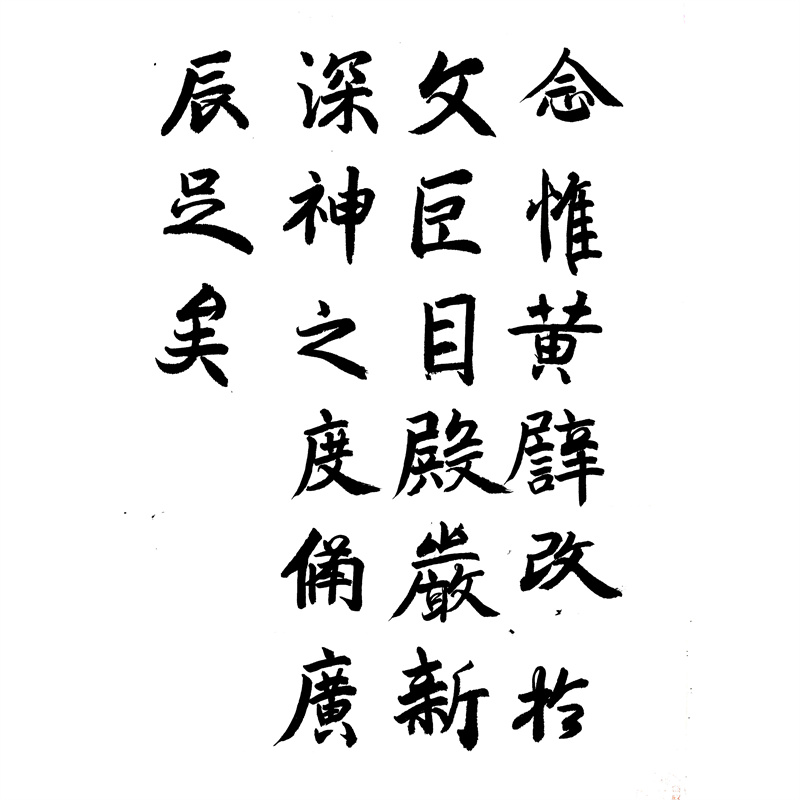 念惟黄譬改於
文巨目殿嚴新
深神之度備廣
辰足矣